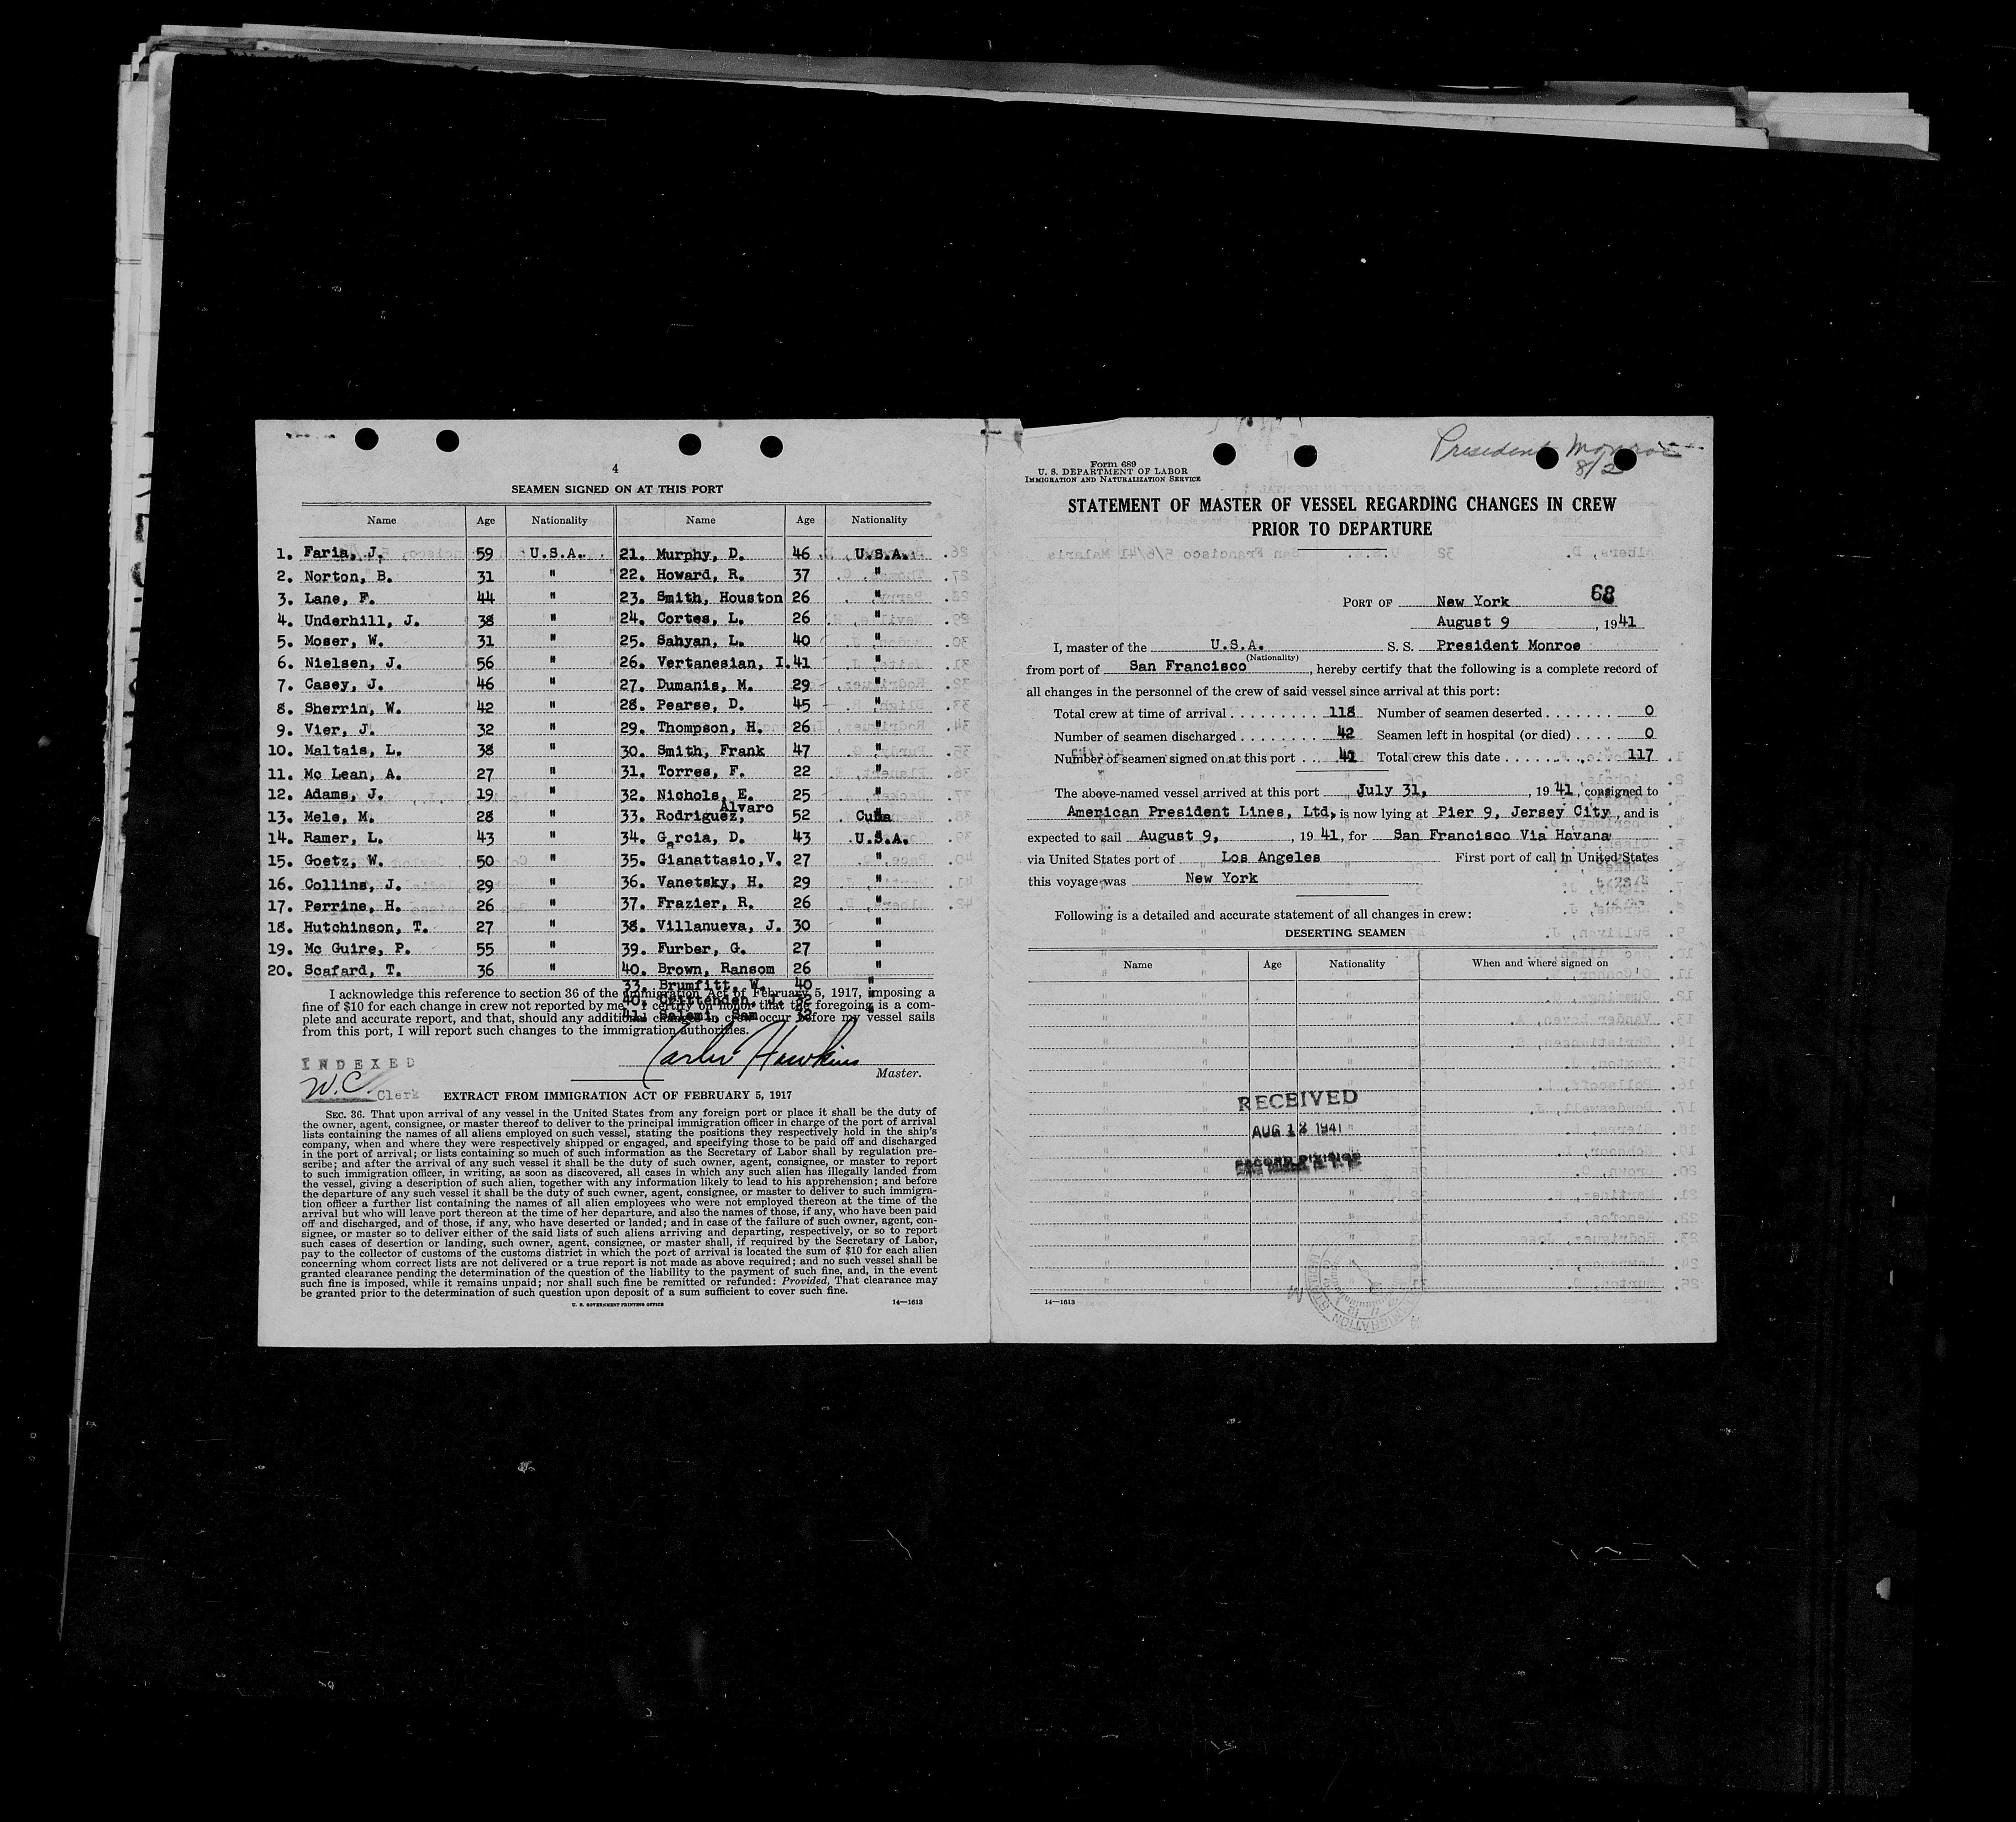 4
SEAMEN SIGNED ON AT THIS PORT
Name Age Nationality Name Age Nationality
1. Faria, J. 59 U.S.A. 21. Murphy, D. 46 U.S.A.
2. Norton, B. 31 " 22. Howard, R. 37 "
3. Lane, F. 44 " 23. Smith, Houston 26 "
4. Underhill, J. 38 " 24. Cortes, L. 26 "
5. Moser, W. 31 " 25. Sahyan, L. 40 "
6. Nielsen, J. 56 " 26. Vertanesian, I. 41 "
7. Casey, J. 46 " 27. Dumanis, M. 29 "
8. Sherrin, W. 42 " 28. Pearse, D. 45 "
9. Vier, J. 32 " 29. Thompson, H. 26 "
10. Maltais, L. 38 " 30. Smith, Frank 47 "
11. Mc Lean, A. 27 " 31. Torres, F. 22 "
12. Adams, J. 19 " 32. Nichols, E. 25 "
13. Mele, M. 28 " 33. Rodriguez, Alvaro 52 Cuba
14. Ramer, L. 43 " 34. Garcia, D. 43 U.S.A.
15. Goetz, W. 50 " 35. Gianattasio, V. 27 "
16. Collins, J. 29 " 36. Vanetsky, H. 29 "
17. Perrine, H. 26 " 37. Frazier, R. 26 "
18. Hutchinson, T. 27 " 38. Villanueva, J. 30 "
19. Mc Guire, P. 55 " 39. Furber, G. 27 "
20. Scafard, T. 36 " 40. Brown, Ransom 26 "
33. Brumfitt, W. 40 "
40. Crittenden, J. 32 "
41. Salemi, Sam 32 "
I acknowledge this reference to section 36 of the Immigration Act of February 5, 1917, imposing a
fine of $10 for each change in crew not reported by me. I certify on honor that the foregoing is a com-
plete and accurate report, and that, should any additional changes in crew occur before my vessel sails
from this port, I will report such changes to the immigration authorities.
INDEXED
W.C. Clerk
Hawkins
Master.
EXTRACT FROM IMMIGRATION ACT OF FEBRUARY 5, 1917
SEC. 36. That upon arrival of any vessel in the United States from any foreign port or place it shall be the duty of
the owner, agent, consignee, or master thereof to deliver to the principal immigration officer in charge of the port of arrival
lists containing the names of all aliens employed on such vessel, stating the positions they respectively hold in the ship's
company, when and where they were respectively shipped or engaged, and specifying those to be paid off and discharged
in the port of arrival; or lists containing so much of such information as the Secretary of Labor shall by regulation pre-
scribe; and after the arrival of any such vessel it shall be the duty of such owner, agent, consignee, or master to report
to such immigration officer, in writing, as soon as discovered, all cases in which any such alien has illegally landed from
the vessel, giving a description of such alien, together with any information likely to lead to his apprehension; and before
the departure of any such vessel it shall be the duty of such owner, agent, consignee, or master to deliver to such immigra-
tion officer a further list containing the names of all alien employees who were not employed thereon at the time of the
arrival but who will leave port thereon at the time of her departure, and also the names of those, if any, who have been paid
off and discharged, and of those, if any, who have deserted or landed; and in case of the failure of such owner, agent, con-
signee, or master so to deliver either of the said lists of such aliens arriving and departing, respectively, or so to report
such cases of desertion or landing, such owner, agent, consignee, or master shall, if required by the Secretary of Labor,
pay to the collector of customs of the customs district in which the port of arrival is located the sum of $10 for each alien
concerning whom correct lists are not delivered or a true report is not made as above required; and no such vessel shall be
granted clearance pending the determination of the question of the liability to the payment of such fine, and, in the event
such fine is imposed, while it remains unpaid; nor shall such fine be remitted or refunded: Provided, That clearance may
be granted prior to the determination of such question upon deposit of a sum sufficient to cover such fine.
U. S. GOVERNMENT PRINTING OFFICE 14—1613
President Monroe
Form 689
U. S. DEPARTMENT OF LABOR
IMMIGRATION AND NATURALIZATION SERVICE
STATEMENT OF MASTER OF VESSEL REGARDING CHANGES IN CREW
PRIOR TO DEPARTURE
68
PORT OF New York
August 9, 1941
I, master of the U.S.A. S. S. President Monroe
(Nationality)
from port of San Francisco, hereby certify that the following is a complete record of
all changes in the personnel of the crew of said vessel since arrival at this port:
Total crew at time of arrival 118 Number of seamen deserted 0
Number of seamen discharged 42 Seamen left in hospital (or died) 0
Number of seamen signed on at this port 41 Total crew this date 117
The above-named vessel arrived at this port July 31, 1941, consigned to
American President Lines, Ltd, is now lying at Pier 9, Jersey City, and is
expected to sail August 9, 1941, for San Francisco Via Havana
via United States port of Los Angeles First port of call in United States
this voyage was New York
Following is a detailed and accurate statement of all changes in crew:
DESERTING SEAMEN
Name Age Nationality When and where signed on
RECEIVED
AUG 12 1941
14—1613